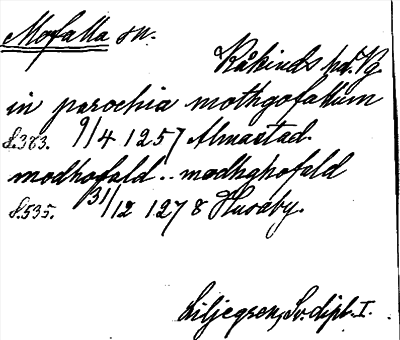 Mofalla sn.
Kåkinds hd. Vg.
in parochia mothgofallum
s. 383. 9/4 1257 Almastad.
modhofald .. modhghofald
s. 535. 31/12 1278 Husaby.
Liljegren, Sv. dipl. I.